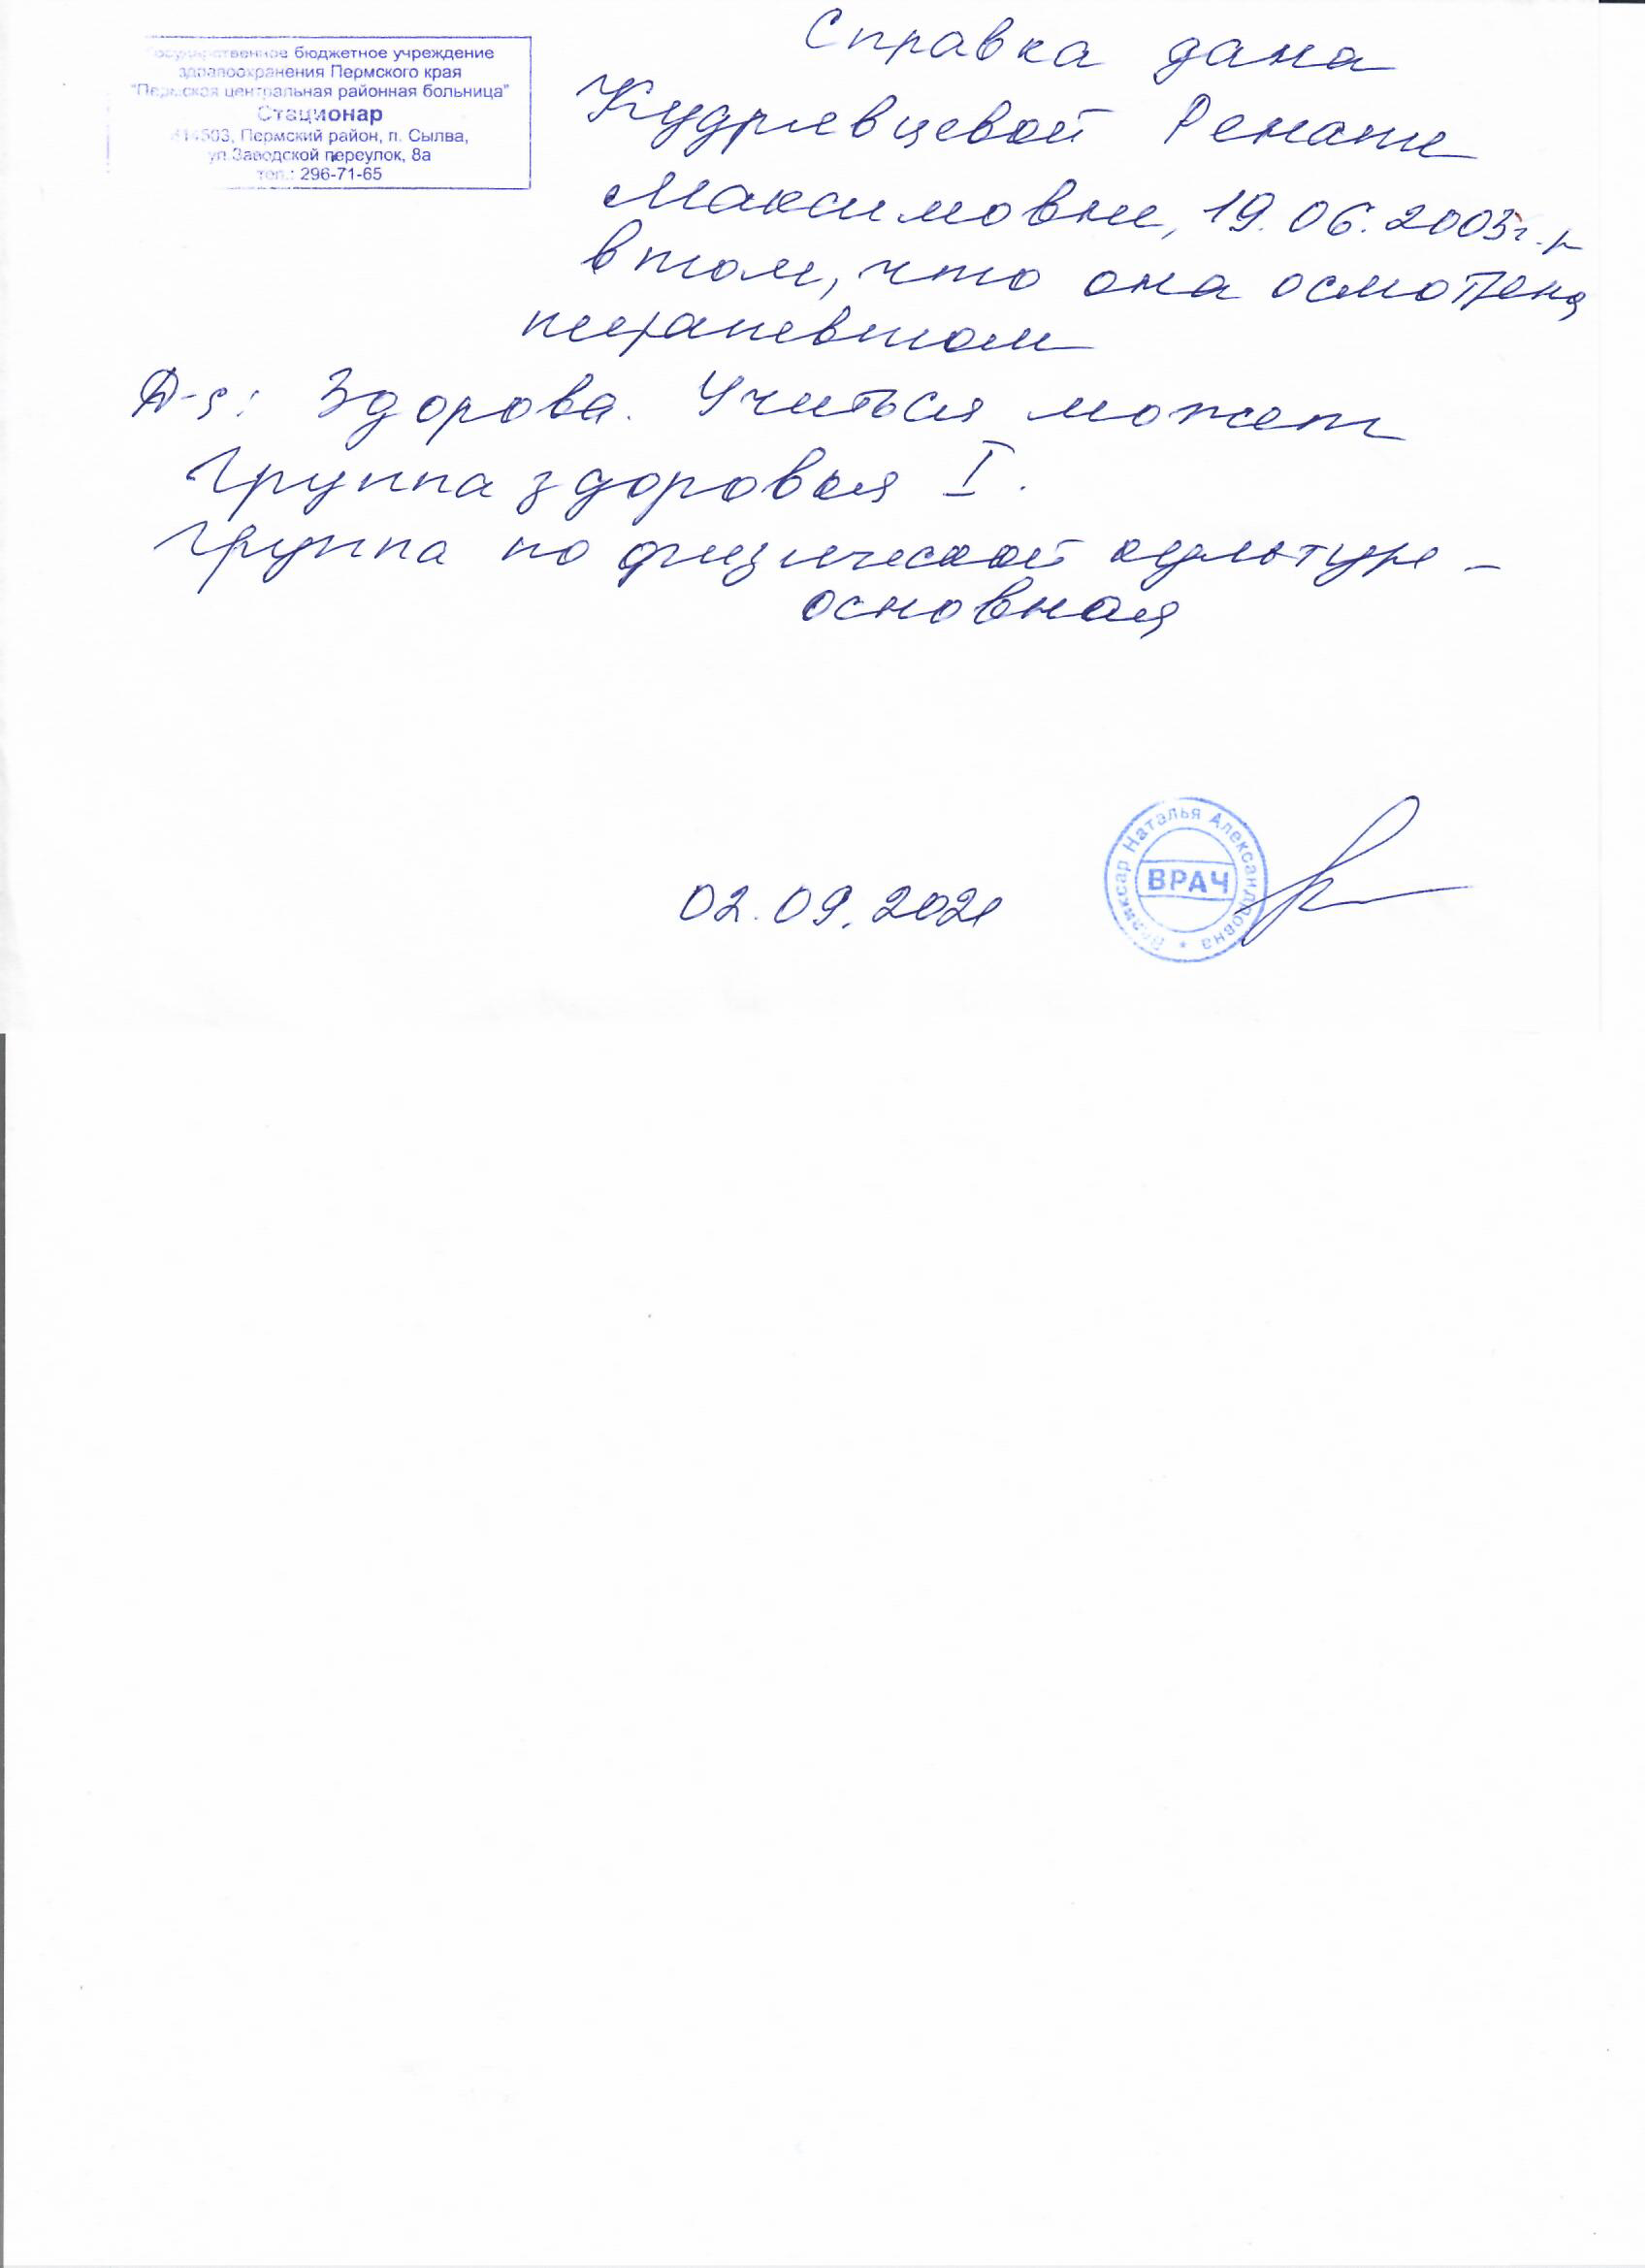 Государственное бюджетное учреждение
здравоохранения Пермского края
"Пермская центральная районная больница"
Стационар
614503, Пермский район, п. Сылва,
ул.Заводской переулок, 8а
тел.: 296-71-65
Справка дана
Кудрявцевой Ренате
Максимовне, 19.06.2003г.р
в том, что она осмотрена
терапевтом
Д-з: Здорова. Учиться может
Группа здоровья I.
Группа по физической культуре –
основная
02.09.2021
Наталья Александровна
ВРАЧ